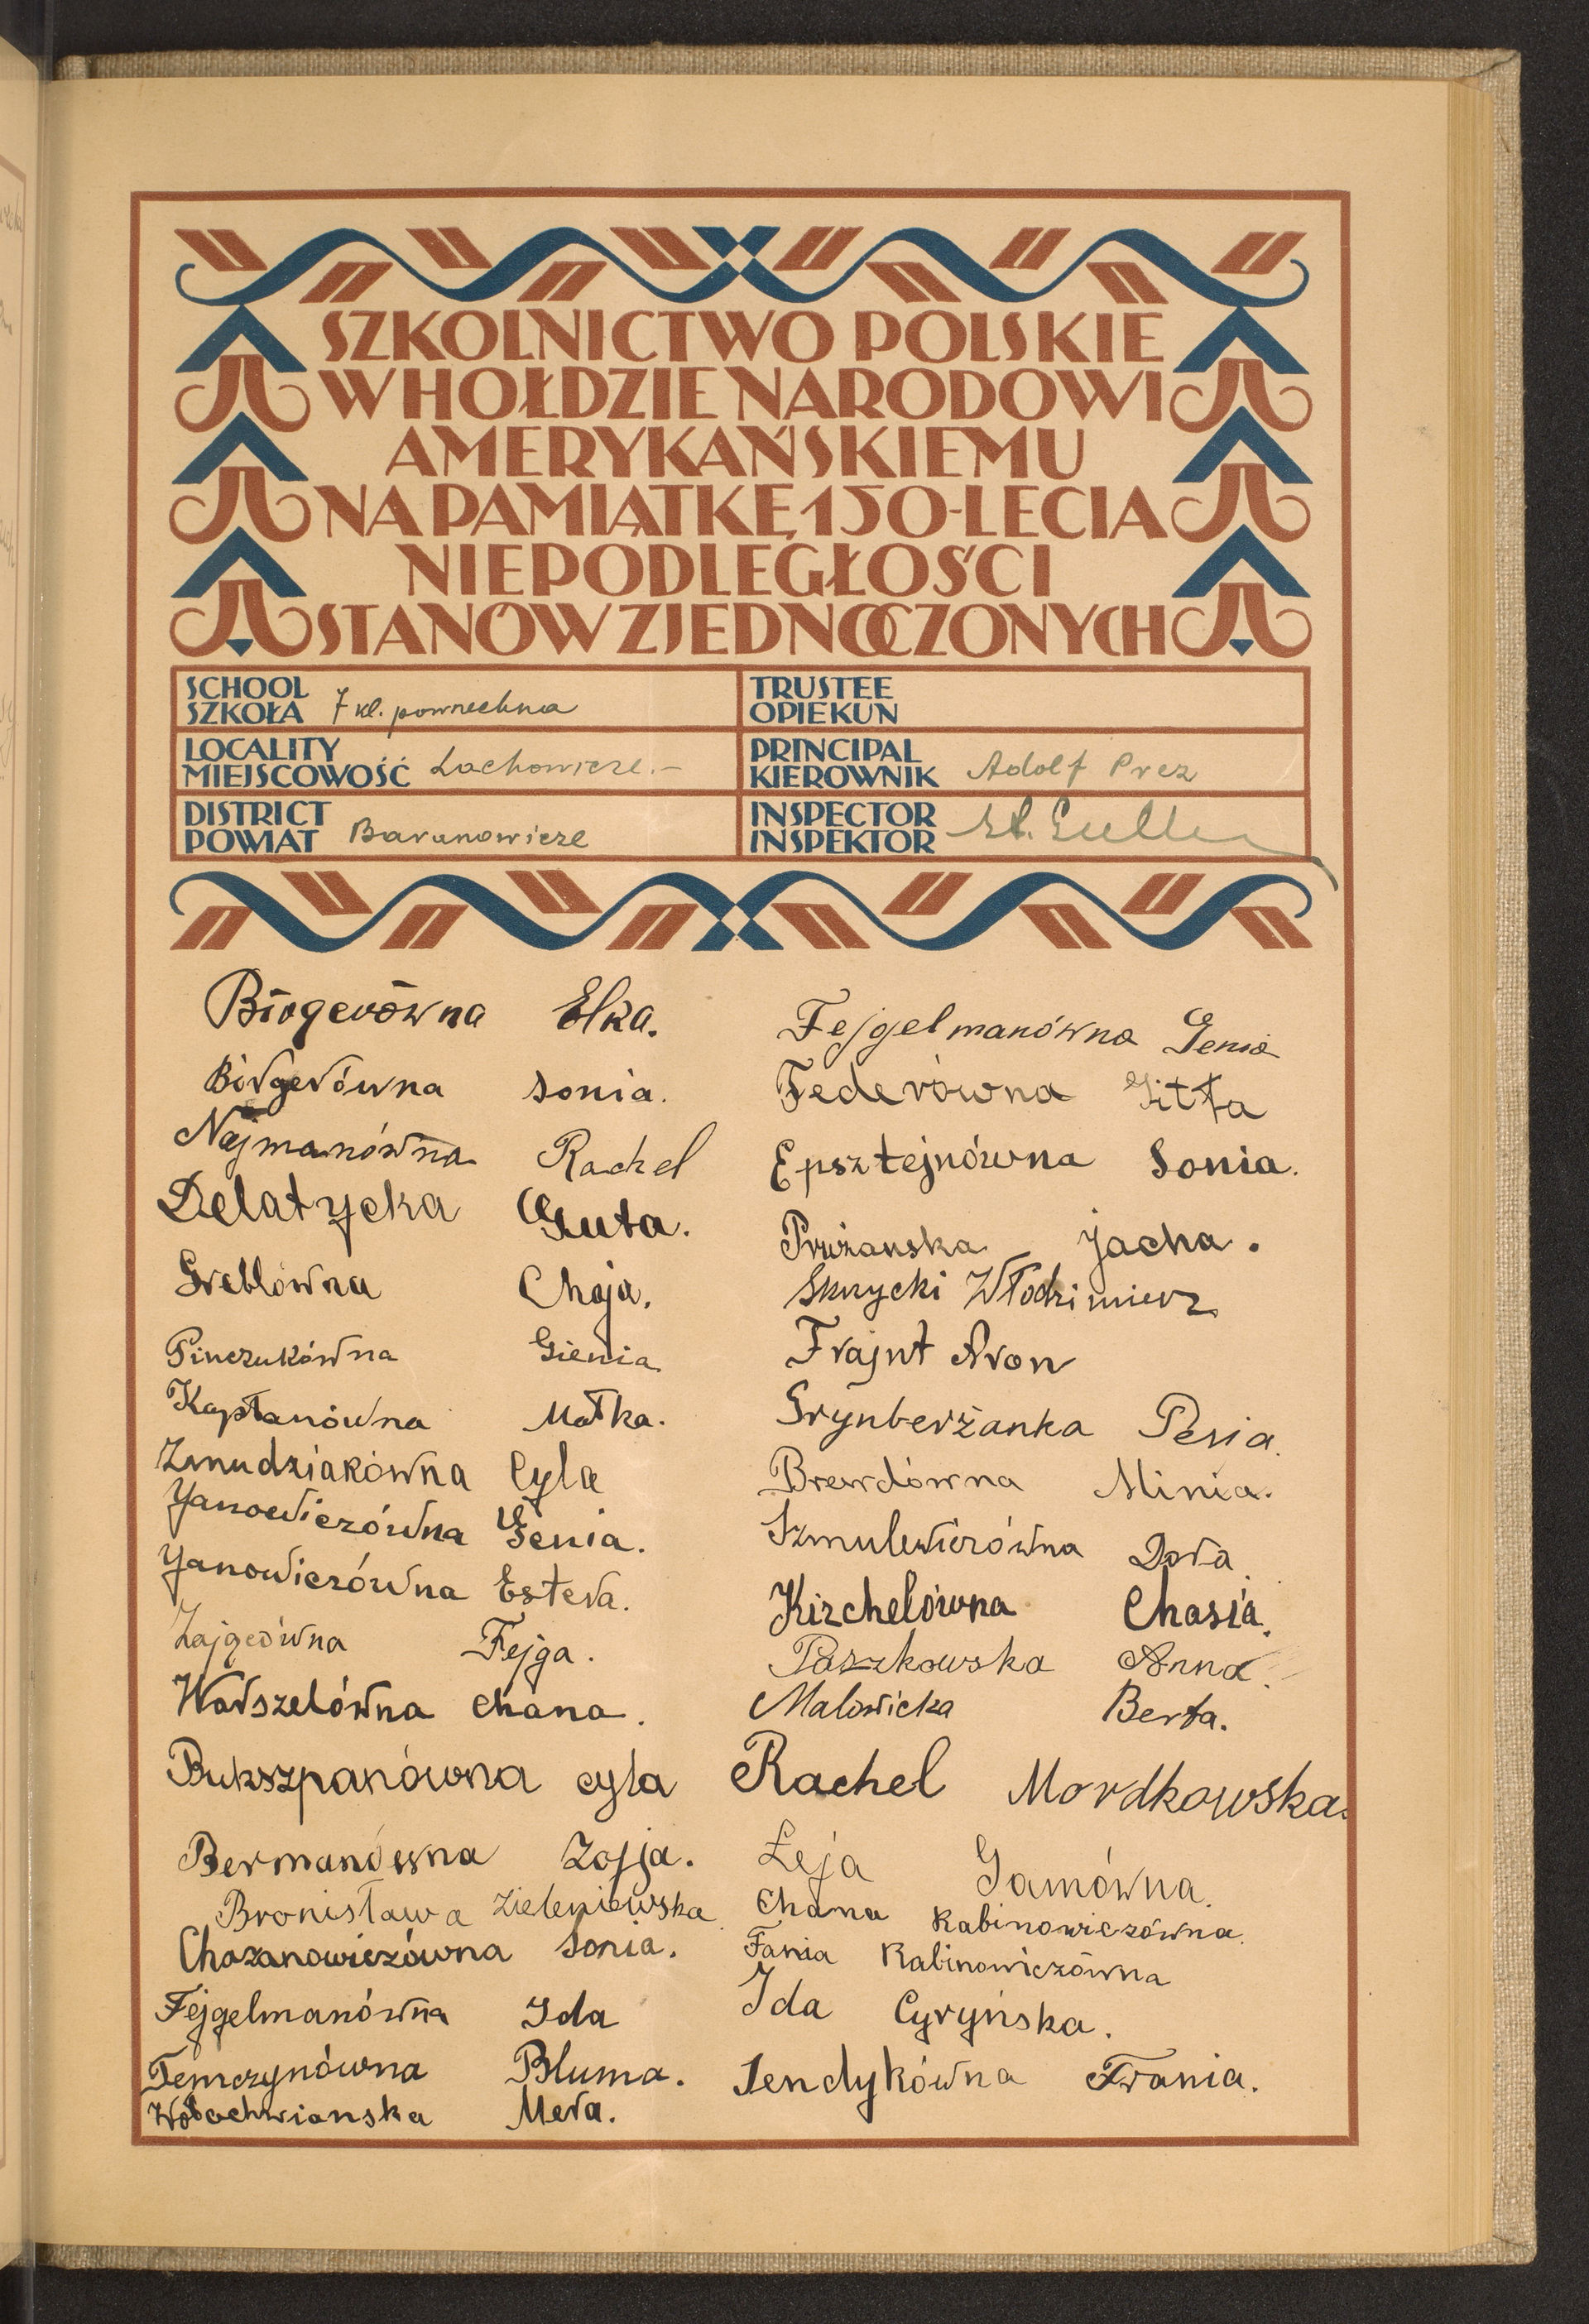 SZKOLNICTWO POLSKIE
W HOŁDZIE NARODOWI
AMERYKAŃSKIEMU
NA PAMIĄTKĘ 150-LECIA
NIEPODLEGŁOŚCI
STANÓW ZJEDNOCZONYCH
SCHOOL
SZKOŁA 7 kl. powszechna
TRUSTEE
OPIEKUN
LOCALITY
MIEJSCOWOŚĆ Lachowicze.-
PRINCIPAL
KIEROWNIK Adolf Prez
DISTRICT
POWIAT Baranowicze
INSPECTOR
INSPEKTOR St.
Birgerówna Elka.
Birgerówna Sonia.
Najmanówna Rachel
Delatycka Guta.
Greblówna Chaja.
Pinczukówna Gienia
Kapłanówna Matka.
Zmudziakówna Cyla
Janowiczówna Genia.
Janowiczówna Estera.
Zajgeówna Fejga.
Warszelówna Chana.
Bukszpanówna Cyla
Bermanówna Zofja.
Bronisława Zieleniewska
Chazanowiczówna Sonia.
Fejgelmanówna Ida
Temczynówna Bluma.
Wołochwianska Mera.
Fejgelmanówna Genia
Federówna Gitta
Epsztejnówna Sonia.
Prużanska Jacha.
Skurycki Włodzimierz
Frajnt Aron
Grynberżanka Pesia.
Brewdówna Minia.
Szmulewiczówna Dora.
Kirchelówna Chasia.
Paszkowska Anna.
Malowicka Berta.
Rachel Mordkowska.
Leja Gamówna.
Chana Rabinowiczówna.
Fania Rabinowiczówna
Ida Cyryńska.
Sendykówna Frania.